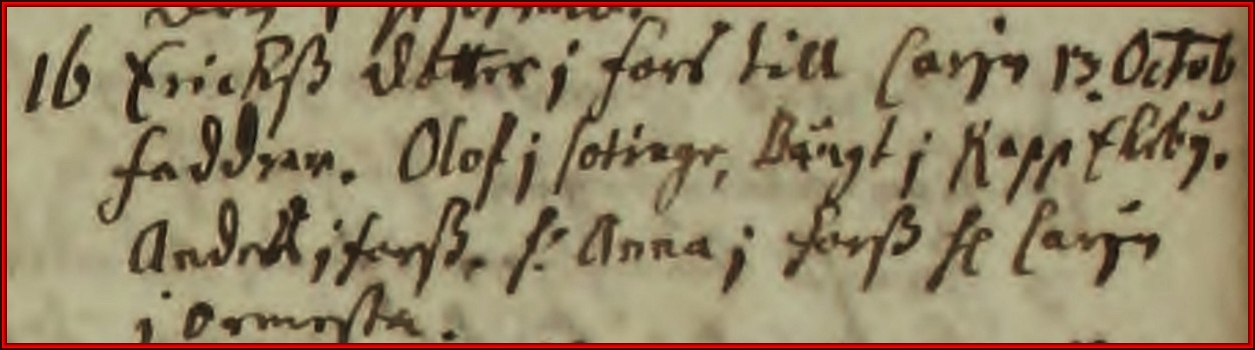 16 Erichß dotter j fors till Carin 13. Octob
faddrar. Olof j sotinge, Bängt j Kapp Ekeby.
Anders j forß. h. Anna j forß h Carin
j Ormesta.